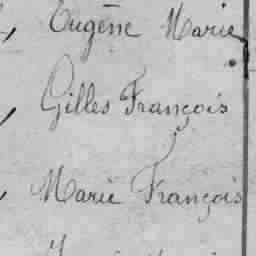 Eugène Marie
Gilles François
Marie François